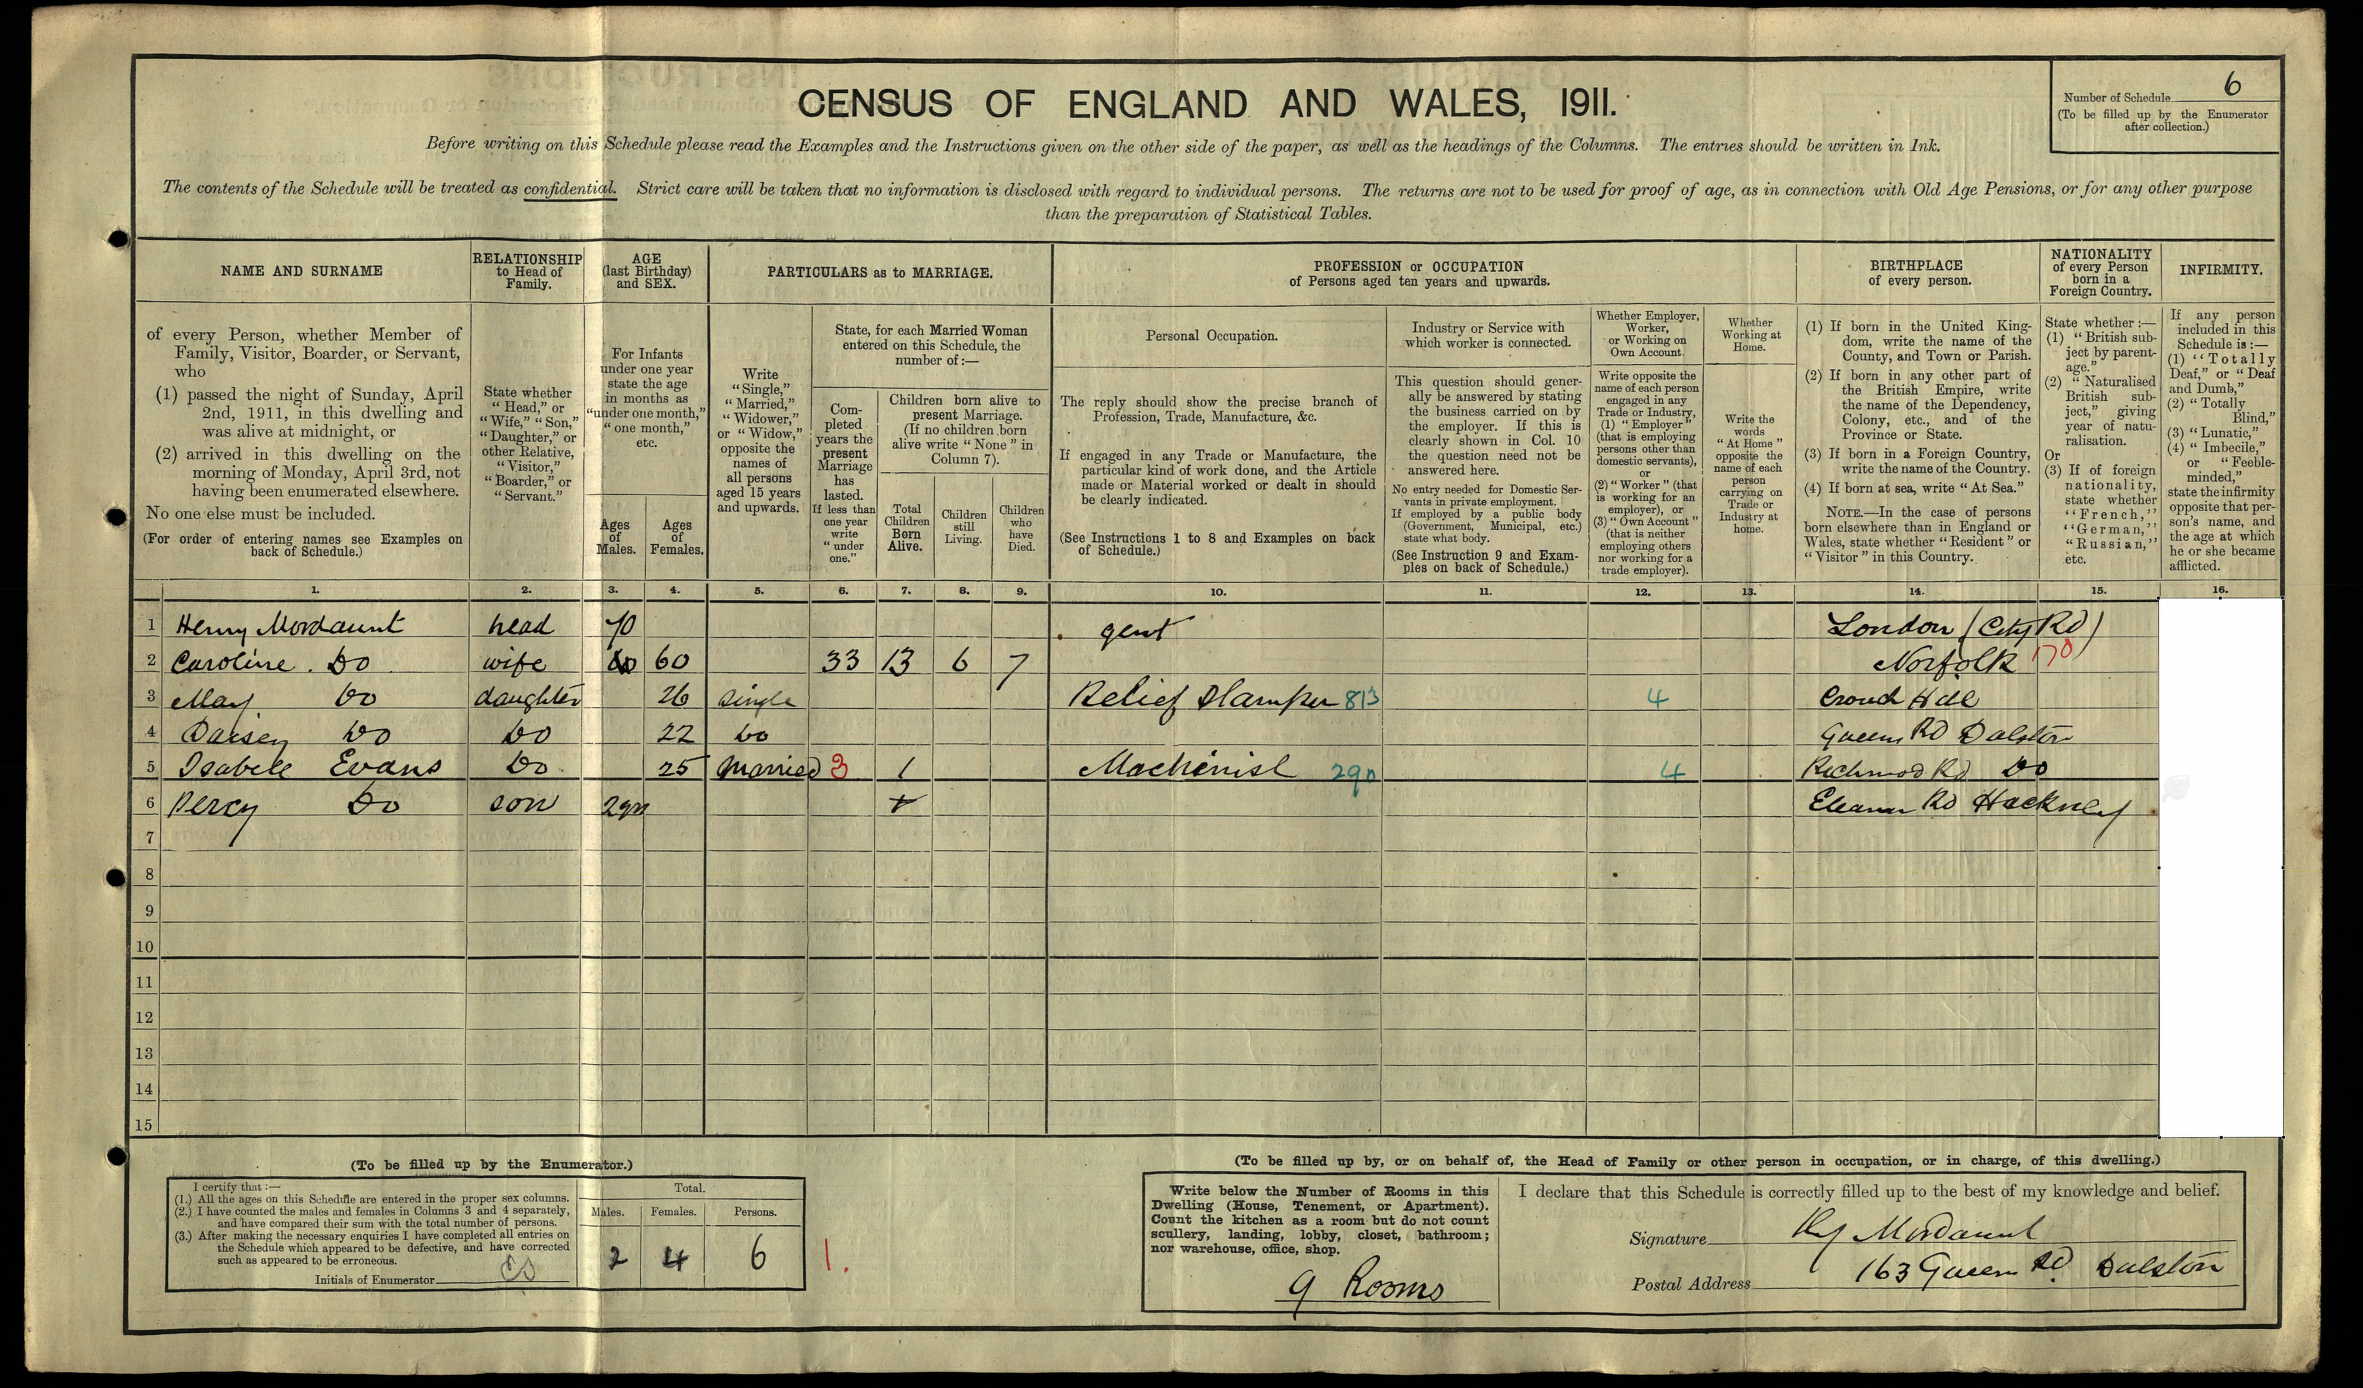 CENSUS OF ENGLAND AND WALES, 1911.
Number of Schedule 6
(To be filled up by the Enumerator
after collection.)
Before writing on this Schedule please read the Examples and the Instructions given on the other side of the paper, as well as the headings of the Columns. The entries should be written in Ink.
The contents of the Schedule will be treated as confidential. Strict care will be taken that no information is disclosed with regard to individual persons. The returns are not to be used for proof of age, as in connection with Old Age Pensions, or for any other purpose
than the preparation of Statistical Tables.
NAME AND SURNAME
RELATIONSHIP
to Head of
Family.
AGE
(last Birthday)
and SEX.
PARTICULARS as to MARRIAGE.
PROFESSION or OCCUPATION
of Persons aged ten years and upwards.
BIRTHPLACE
of every person.
NATIONALITY
of every Person
born in a
Foreign Country.
INFIRMITY.
of every Person, whether Member of
Family, Visitor, Boarder, or Servant,
who
(1) passed the night of Sunday, April
2nd, 1911, in this dwelling and
was alive at midnight, or
(2) arrived in this dwelling on the
morning of Monday, April 3rd, not
having been enumerated elsewhere.
No one else must be included.
(For order of entering names see Examples on
back of Schedule.)
State whether
"Head," or
"Wife," "Son,"
"Daughter," or
other Relative,
"Visitor,"
"Boarder," or
"Servant."
For Infants
under one year
state the age
in months as
"under one month,"
"one month,"
etc.
Ages
of
Males.
Ages
of
Females.
Write
"Single,"
"Married,"
"Widower,"
or "Widow,"
opposite the
names of
all persons
aged 15 years
and upwards.
State, for each Married Woman
entered on this Schedule, the
number of :—
Com-
pleted
years the
present
Marriage
has
lasted.
If less than
one year
write
"under
one."
Children born alive to
present Marriage.
(If no children born
alive write "None" in
Column 7).
Total
Children
Born
Alive.
Children
still
Living.
Children
who
have
Died.
Personal Occupation.
The reply should show the precise branch of
Profession, Trade, Manufacture, &c.
If engaged in any Trade or Manufacture, the
particular kind of work done, and the Article
made or Material worked or dealt in should
be clearly indicated.
(See Instructions 1 to 8 and Examples on back
of Schedule.)
Industry or Service with
which worker is connected.
This question should gener-
ally be answered by stating
the business carried on by
the employer. If this is
clearly shown in Col. 10
the question need not be
answered here.
No entry needed for Domestic Ser-
vants in private employment.
If employed by a public body
(Government, Municipal, etc.)
state what body.
(See Instruction 9 and Exam-
ples on back of Schedule.)
Whether Employer,
Worker,
or Working on
Own Account.
Write opposite the
name of each person
engaged in any
Trade or Industry,
(1) "Employer"
(that is employing
persons other than
domestic servants),
or
(2) "Worker" (that
is working for an
employer), or
(3) "Own Account"
(that is neither
employing others
nor working for a
trade employer).
Whether
Working at
Home.
Write the
words
"At Home"
opposite the
name of each
person
carrying on
Trade or
Industry at
home.
(1) If born in the United King-
dom, write the name of the
County, and Town or Parish.
(2) If born in any other part of
the British Empire, write
the name of the Dependency,
Colony, etc., and of the
Province or State.
(3) If born in a Foreign Country,
write the name of the Country.
(4) If born at sea, write "At Sea."
NOTE.—In the case of persons
born elsewhere than in England or
Wales, state whether "Resident" or
"Visitor" in this Country.
State whether :—
(1) "British sub-
ject by parent-
age."
(2) "Naturalised
British sub-
ject," giving
year of natu-
ralisation.
Or
(3) If of foreign
nationality,
state whether
"French,"
"German,"
"Russian,"
etc.
If any person
included in this
Schedule is :—
(1) "Totally
Deaf," or "Deaf
and Dumb,"
(2) "Totally
Blind,"
(3) "Lunatic,"
(4) "Imbecile,"
or "Feeble-
minded,"
state the infirmity
opposite that per-
son's name, and
the age at which
he or she became
afflicted.
1. 2. 3. 4. 5. 6. 7. 8. 9. 10. 11. 12. 13. 14. 15. 16.
1 Henry Mordaunt head 70 gent London (City Rd)
2 Caroline Do wife 60 33 13 6 7 Norfolk 170
3 May Do daughter 26 single Relief Stamper 813 4 Crouch Hill
4 Daisey Do Do 22 Do Queens Rd Dalston
5 Isabell Evans Do 25 Married 3 1 Machinist 290 4 Richmod Rd Do
6 Percy Do son Eleanor Rd Hackney
7
8
9
10
11
12
13
14
15
(To be filled up by the Enumerator.)
I certify that :—
(1.) All the ages on this Schedule are entered in the proper sex columns.
(2.) I have counted the males and females in Columns 3 and 4 separately,
and have compared their sum with the total number of persons.
(3.) After making the necessary enquiries I have completed all entries on
the Schedule which appeared to be defective, and have corrected
such as appeared to be erroneous.
Initials of Enumerator
Total.
Males. Females. Persons.
2 4 6 1.
(To be filled up by, or on behalf of, the Head of Family or other person in occupation, or in charge, of this dwelling.)
Write below the Number of Rooms in this
Dwelling (House, Tenement, or Apartment).
Count the kitchen as a room but do not count
scullery, landing, lobby, closet, bathroom;
nor warehouse, office, shop.
9 Rooms
I declare that this Schedule is correctly filled up to the best of my knowledge and belief.
Signature Hy Mordaunt
Postal Address 163 Queens Rd Dalston